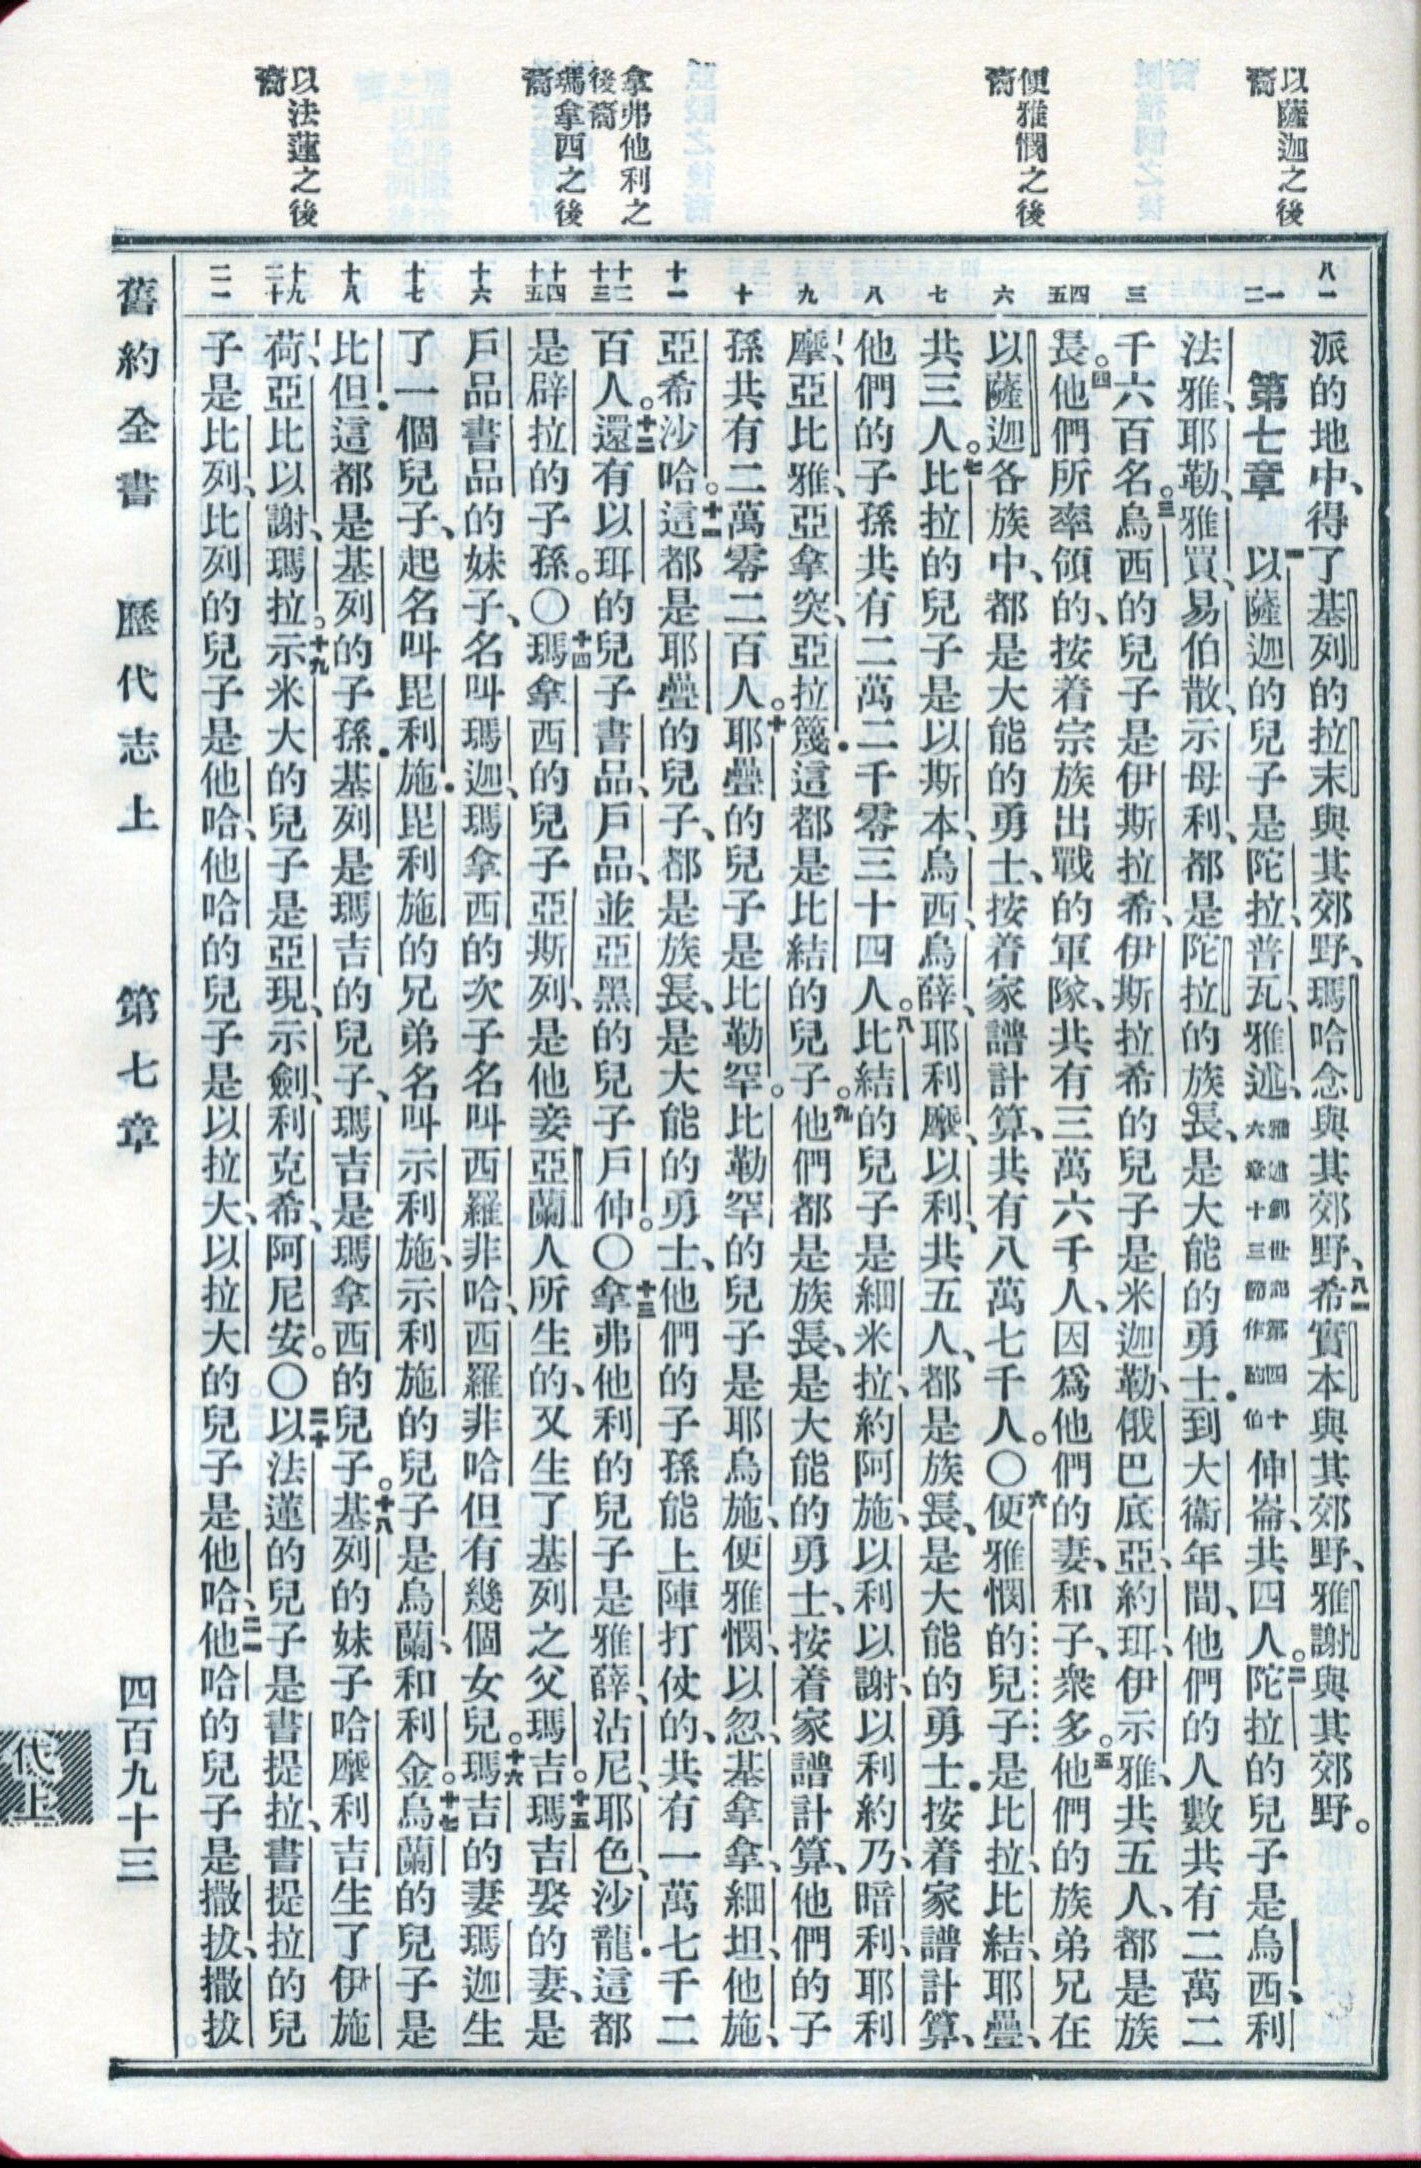 以薩迦之後
裔
便雅憫之後
裔
拿弗他利之
後裔
瑪拿西之後
裔
以法蓮之後
裔
八一
一
二
三
四
五
六
七
八
九
十
十一
十二
十三
十四
十五
十六
十七
十八
十九
二十
二一
派的地中、得了基列的拉末與其郊野、瑪哈念與其郊野、八一希實本與其郊野、雅謝與其郊野。
第七章 一以薩迦的兒子是陀拉、普瓦、雅述、雅述創世記第四十六章十三節作約伯伸崙、共四人。二陀拉的兒子是烏西、利
法雅、耶勒、雅買、易伯散、示母利、都是陀拉的族長、是大能的勇士．到大衞年間、他們的人數共有二萬二
千六百名。三烏西的兒子是伊斯拉希、伊斯拉希的兒子是米迦勒、俄巴底亞、約珥、伊示雅、共五人、都是族
長。四他們所率領的、按着宗族出戰的軍隊、共有三萬六千人、因爲他們的妻、和子、衆多。五他們的族弟兄在
以薩迦各族中、都是大能的勇士、按着家譜計算、共有八萬七千人。〇六便雅憫的兒子是比拉、比結、耶疊、
共三人。七比拉的兒子是以斯本、烏西、烏薛、耶利摩、以利、共五人、都是族長、是大能的勇士．按着家譜計算、
他們的子孫共有二萬二千零三十四人。八比結的兒子是細米拉、約阿施、以利以謝、以利約乃、暗利、耶利
摩、亞比雅、亞拿突、亞拉篾．這都是比結的兒子。九他們都是族長、是大能的勇士、按着家譜計算、他們的子
孫共有二萬零二百人。十耶疊的兒子是比勒罕。比勒罕的兒子是耶烏施、便雅憫、以忽、基拿拿、細坦、他施、
亞希沙哈。十一這都是耶疊的兒子、都是族長、是大能的勇士、他們的子孫能上陣打仗的、共有一萬七千二
百人。十二還有以珥的兒子書品、戶品、並亞黑的兒子戶伸。〇十三拿弗他利的兒子是雅薛、沽尼、耶色、沙龍．這都
是辟拉的子孫。〇十四瑪拿西的兒子亞斯列、是他妾亞蘭人所生的、又生了基列之父瑪吉。十五瑪吉娶的妻、是
戶品書品的妹子、名叫瑪迦、瑪拿西的次子名叫西羅非哈、西羅非哈但有幾個女兒。十六瑪吉的妻瑪迦生
了一個兒子、起名叫毘利施．毘利施的兄弟名叫示利施、示利施的兒子是烏蘭、和利金。十七烏蘭的兒子是
比但．這都是基列的子孫．基列是瑪吉的兒子、瑪吉是瑪拿西的兒子。十八基列的妹子哈摩利吉生了伊施
荷、亞比以謝、瑪拉。十九示米大的兒子是亞現、示劍、利克希、阿尼安。〇二十以法蓮的兒子是書提拉、書提拉的兒
子是比列、比列的兒子是他哈、他哈的兒子是以拉大、以拉大的兒子是他哈、二一他哈的兒子是撒拔、撒拔
舊約全書 歷代志上 第七章 四百九十三
代上